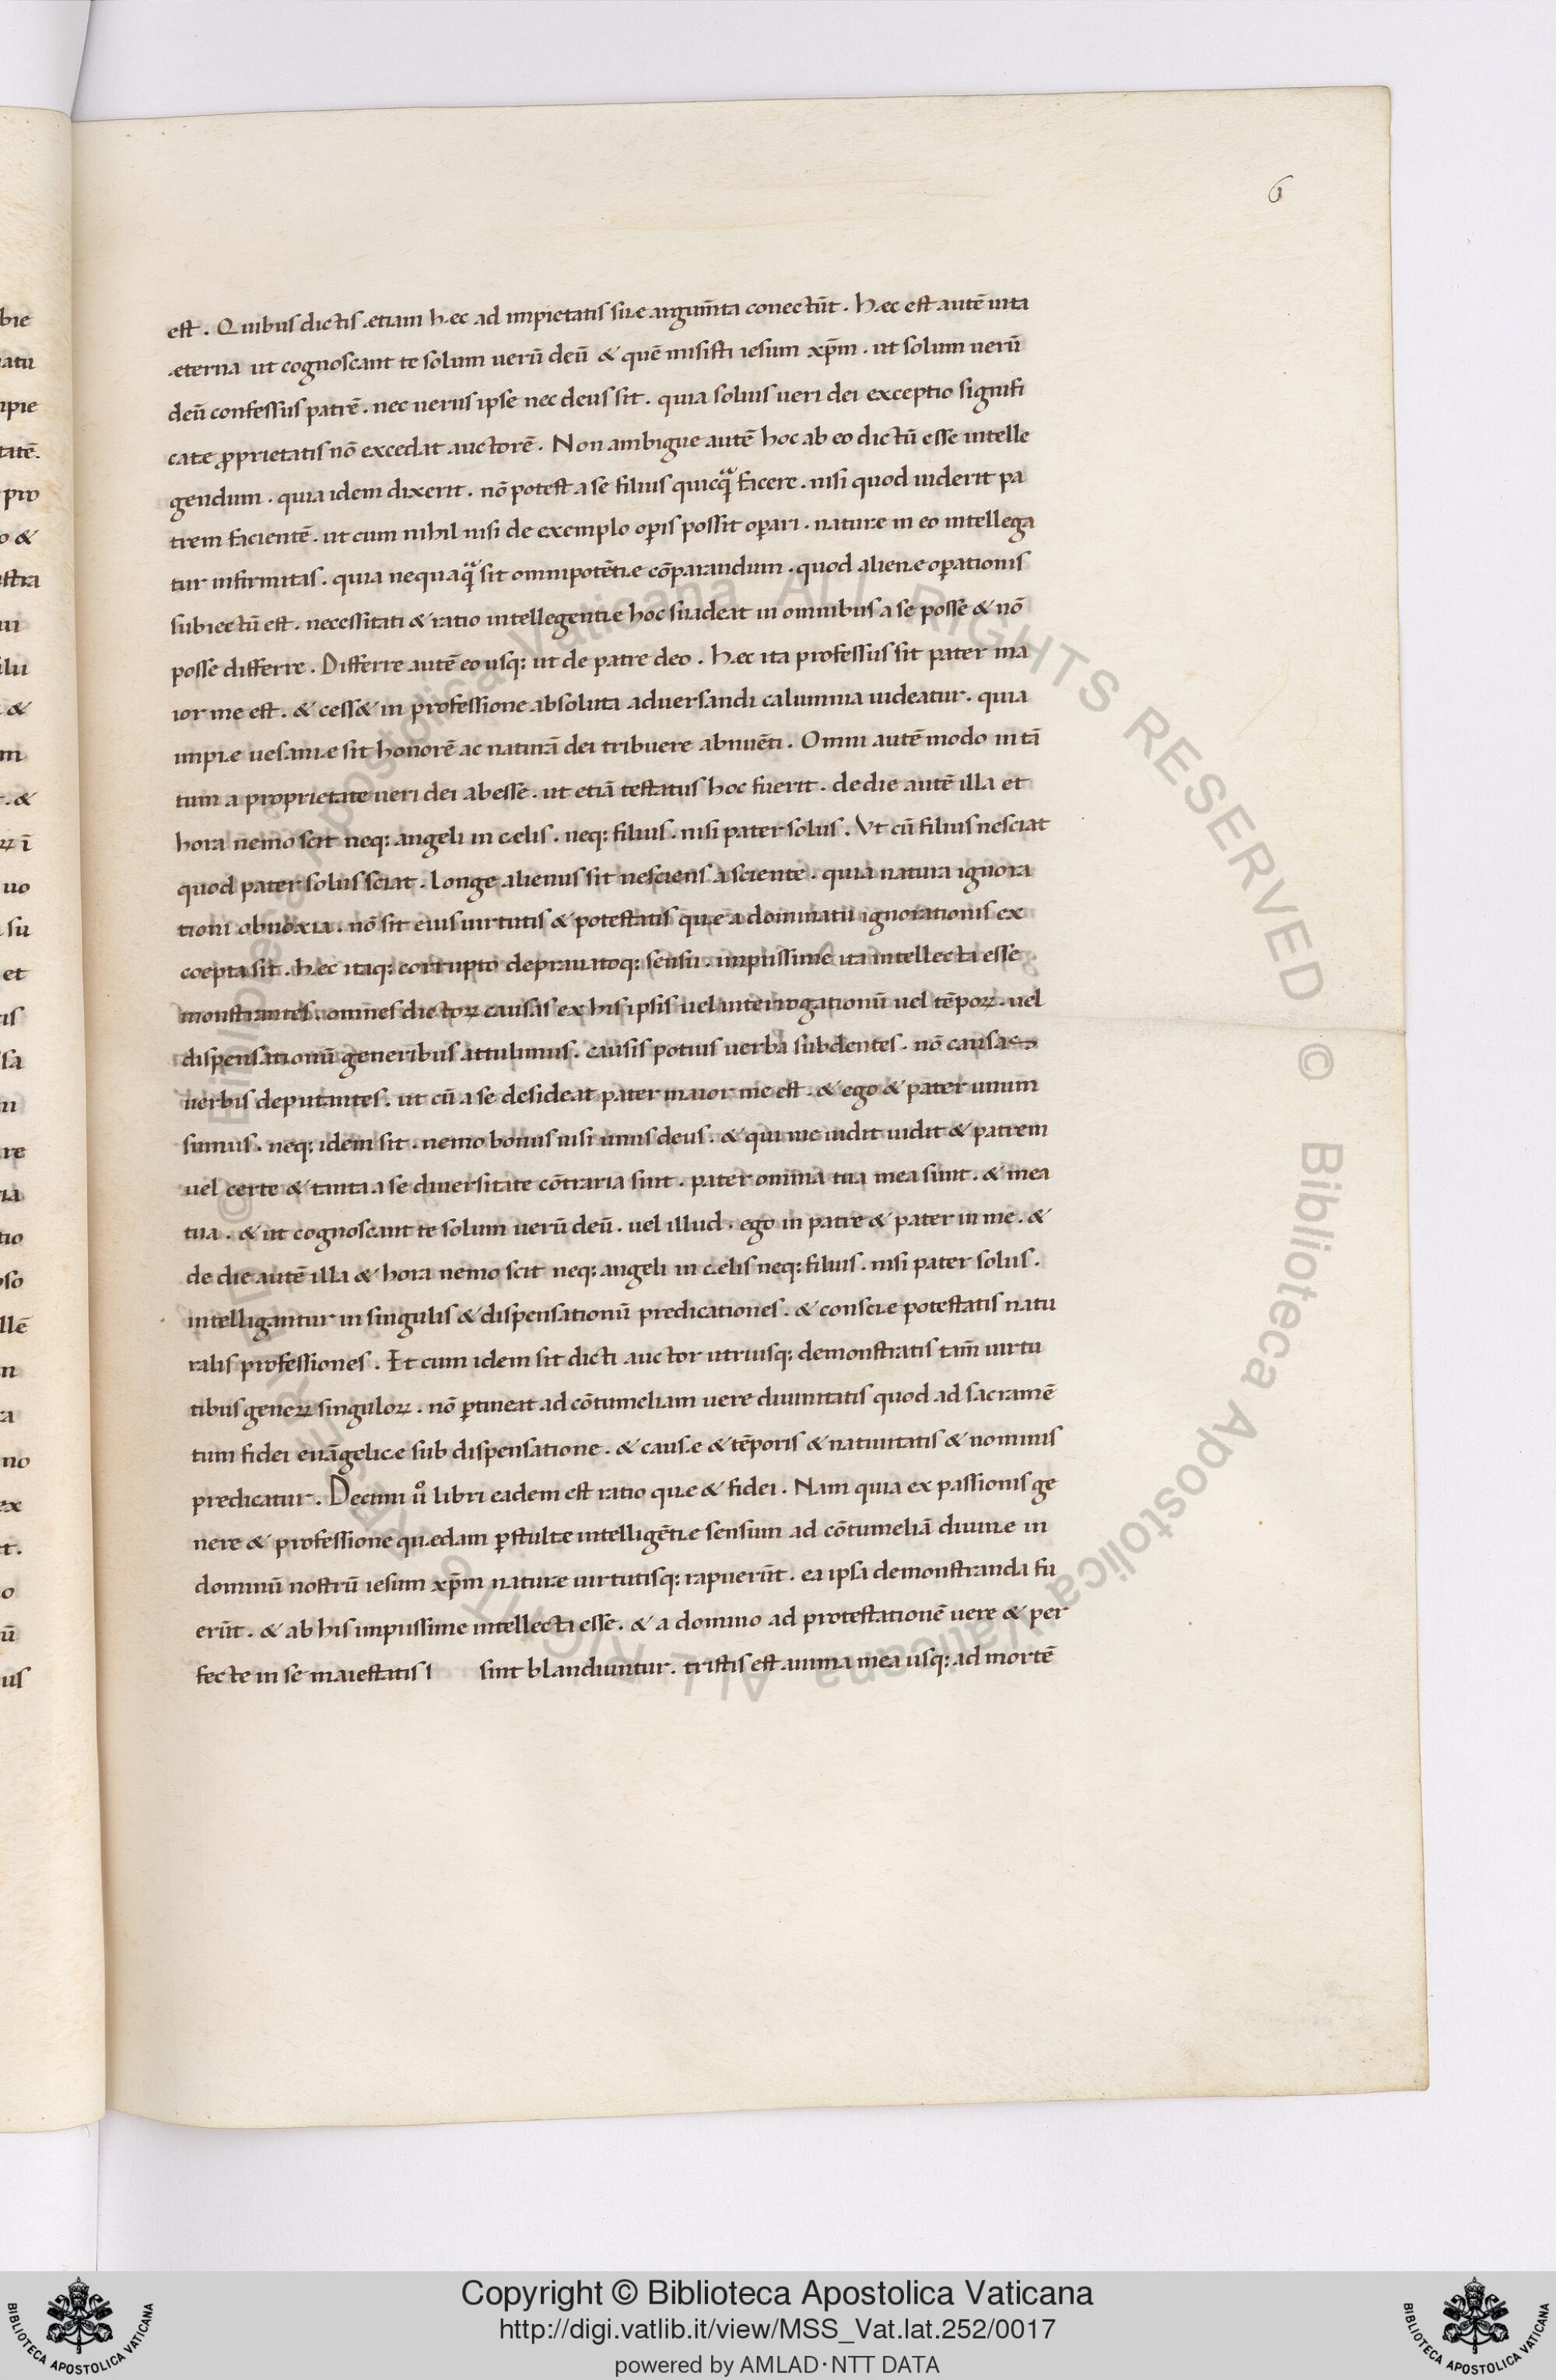 6
est . Quibus dictis ętiam hęc ad impietatis suę argum̄ta conectūt . Hęc est autē uita
ęterna ut cognoscant te solum uerū deū & quē misisti iesum xp̄m . ut solum uerū
deū confessus patrē . nec uerus ipse nec deus sit . quia solius ueri dei exceptio signifi
catę ꝓprietatis nō excedat auctorē . Non ambigue autē hoc ab eo dictū esse intelle
gendum . quia idem dixerit . nō potest a se filius quicq̃ facere . nisi quod uiderit pa
trem facientē . ut cum nihil nisi de exemplo oꝑis possit oꝑari . naturę in eo intellega
tur infirmitas . quia nequaq̃ sit omnipotētię cōparandum . quod alienę oꝑationis
subiectū est . necessitati & ratio intellegentię hoc suadeat in omnibus a se posse & nō
posse differre . Differre autē eo usq; ut de patre deo . hęc ita professus sit pater ma
ior me est . & cess& in professione absoluta aduersandi calumnia uideatur . quia
impię uesanię sit honorē ac naturā dei tribuere abnuēti . Omni autē modo in tā
tum a proprietate ueri dei abesse . ut etiā testatus hoc fuerit . de die autē illa et
hora nemo scit neq; angeli in cęlis . neq; filius . nisi pater solus . Vt cū filius nesciat
quod pater solus sciat . longe alienus sit nesciens a sciente . quia natura ignora
tioni obnoxia . nō sit eius uirtutis & potestatis quę a dominatu ignorationis ex
coepta sit . hęc itaq; corrupto deprauatoq; sensu . impiissime ita intellecta esse
monstrantes . omnes dictoꝝ causas ex his ipsis uel interrogationū uel tēpoꝝ . uel
dispensationū generibus attulimus . causis potius uerba subdentes . nō causas
uerbis deputantes . ut cū a se desideat pater maior me est . & ego & pater unum
sumus . neq; idem sit . nemo bonus nisi unus deus . & qui me uidit uidit & patrem
uel certe & tanta a se diuersitate cōtraria sint . pater omnia tua mea sunt . & mea
tua . & ut cognoscant te solum uerū deū . uel illud . ego in patre & pater in me . &
de die autē illa & hora nemo scit neq; angeli in cęlis neq; filius . nisi pater solus .
intelligantur in singulis & dispensationū predicationes . & conscię potestatis natu
ralis professiones . Et cum idem sit dicti auctor utriusq; demonstratis tam̄ uirtu
tibus geneꝝ singuloꝝ . nō ꝑtineat ad cōtumeliam uere diuinitatis quod ad sacramē
tum fidei euāgelicę sub dispensatione . & causę & tēporis & natiuitatis & nominis
predicatur . Decimi u̓o libri eadem est ratio quę & fidei . Nam quia ex passionis ge
nere & professione quędam ꝑ stultę intelligētię sensum ad cōtumeliā diuinę in
dominū nostrū iesum xp̄m naturę uirtutisq; rapuerūt . ea ipsa demonstranda fu
erūt . & ab his impiissime intellecta esse . & a domino ad protestationē uere & per
fecte in se maiestatis l sint blandiuntur . tristis est anima mea usq; ad mortē
Copyright © Biblioteca Apostolica Vaticana
http://digi.vatlib.it/view/MSS_Vat.lat.252/0017
powered by AMLAD·NTT DATA